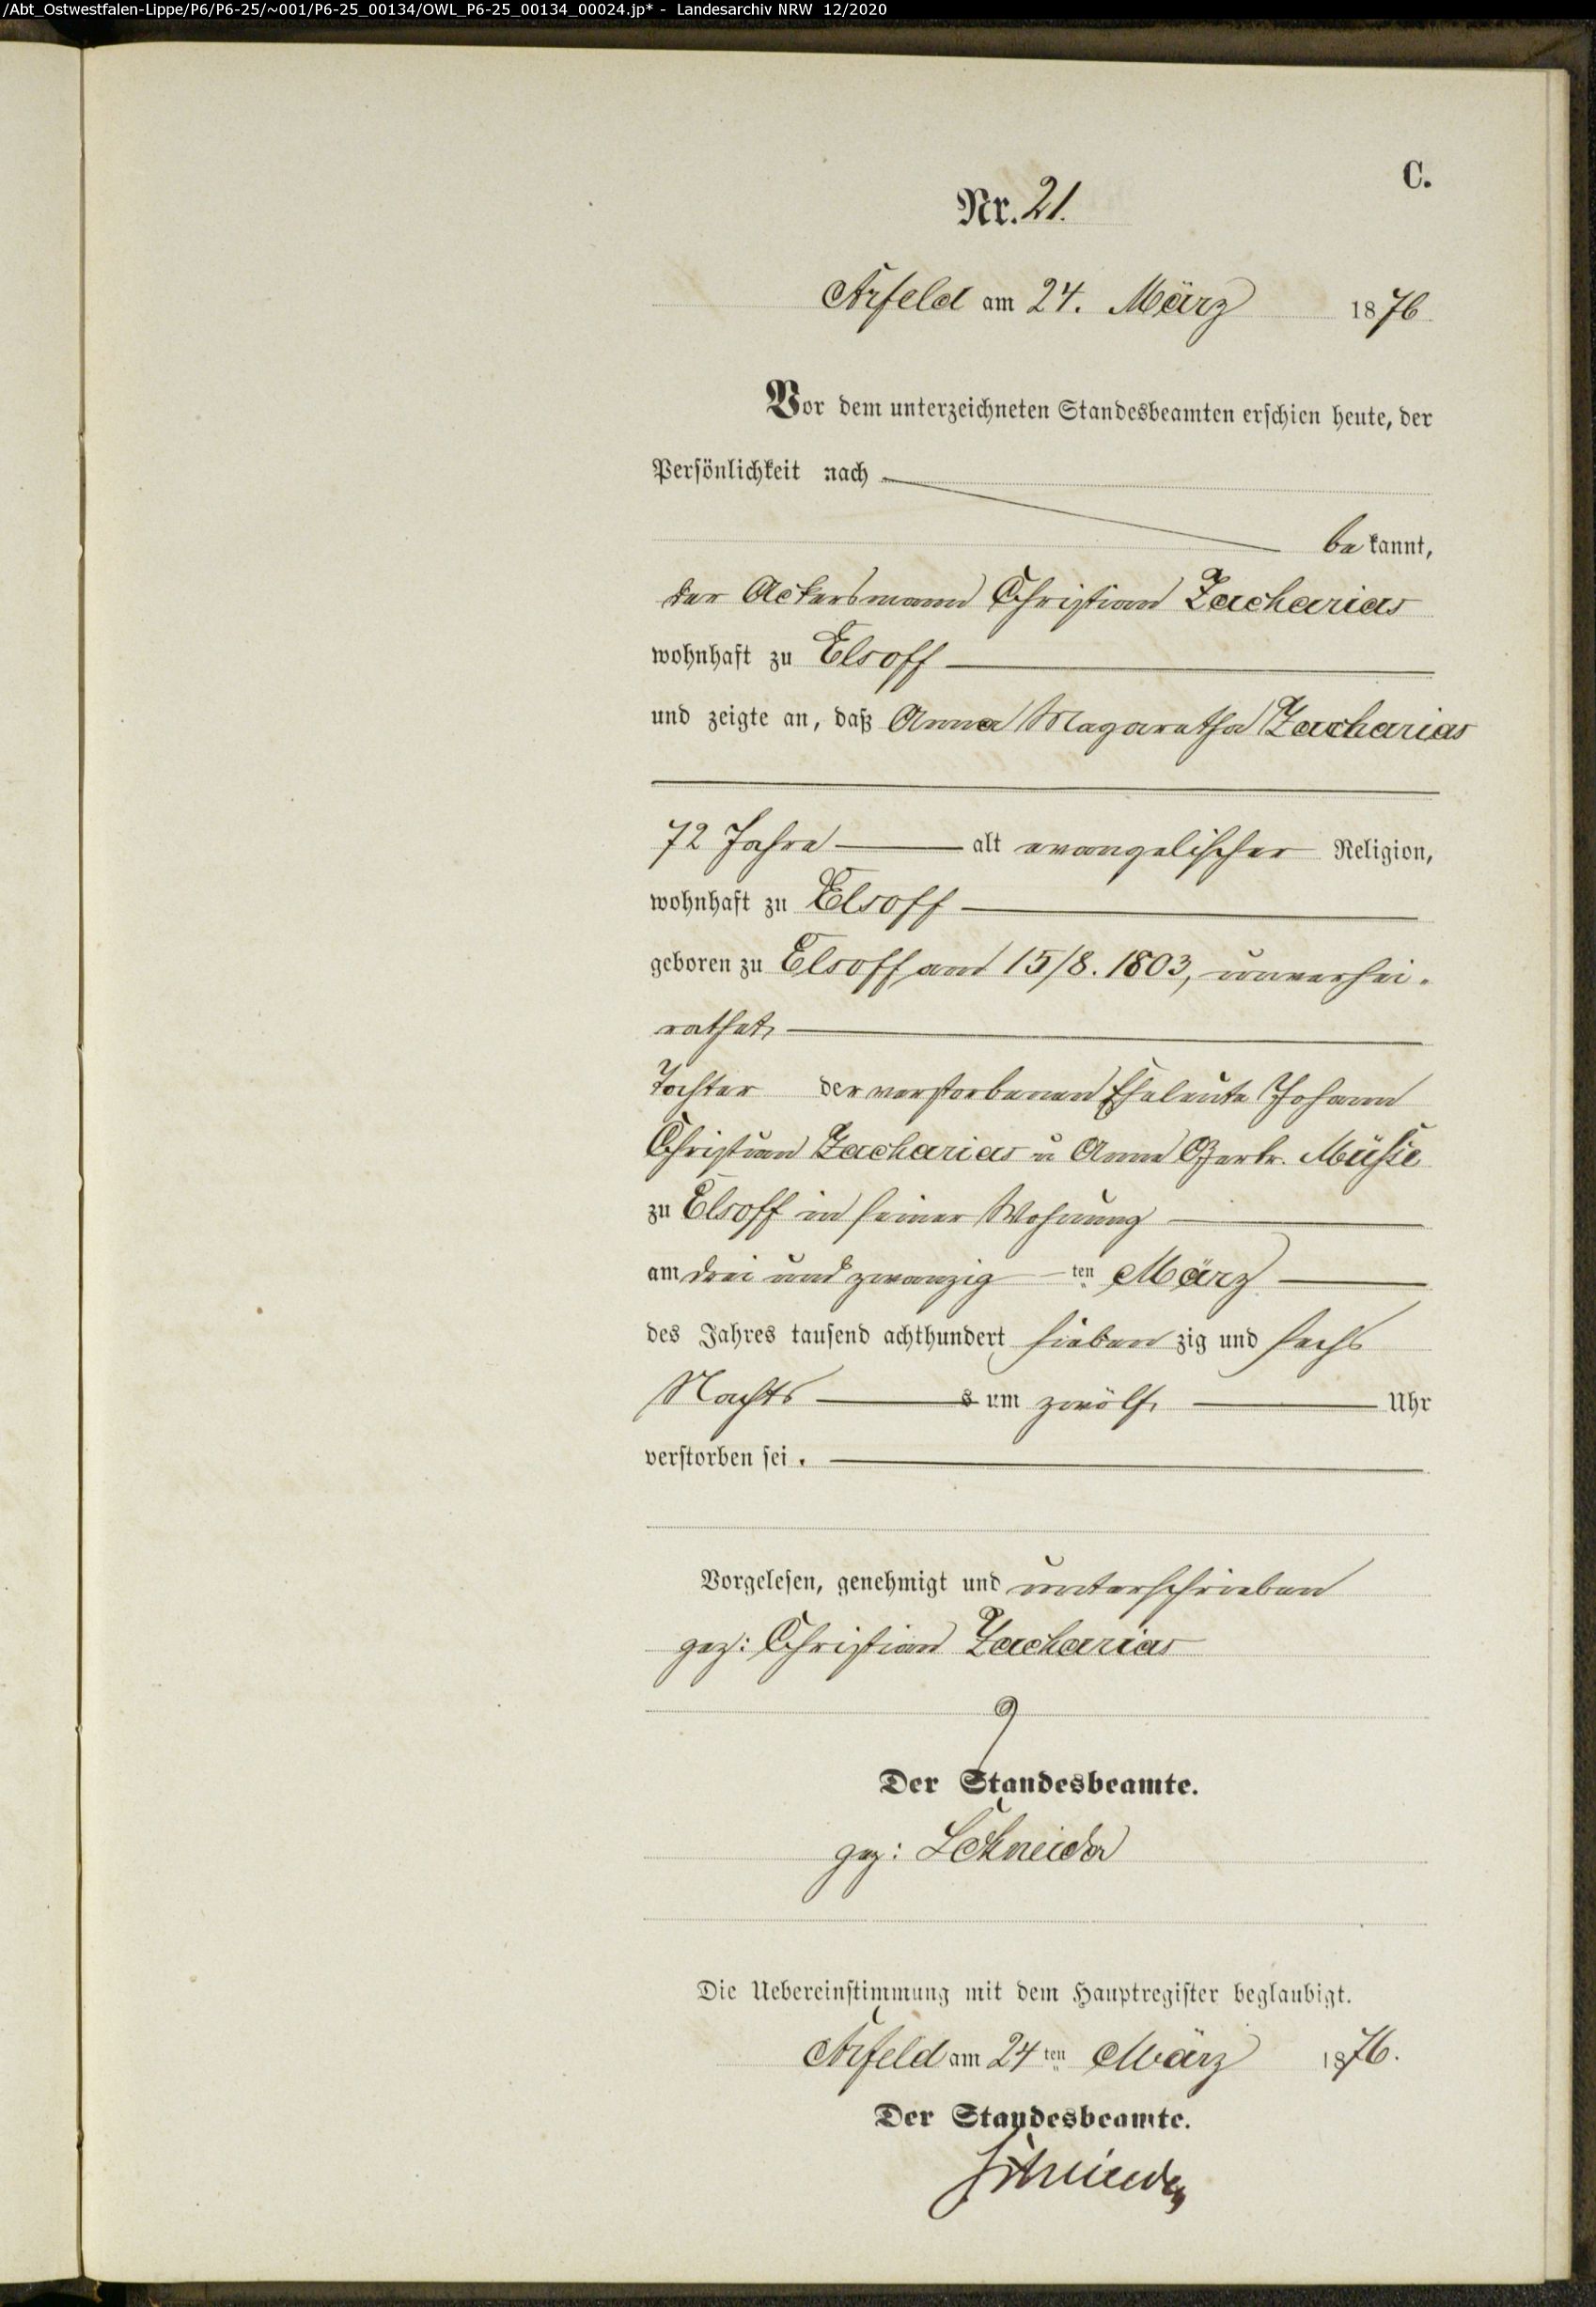 /Abt_Ostwestfalen-Lippe/P6/P6-25/~001/P6-25_00134/OWL_P6-25_00134_00024.jp* - Landesarchiv NRW 12/2020
C.
Nr. 21.
Arfeld am 24. März 1876
Vor dem unterzeichneten Standesbeamten erschien heute, der
Persönlichkeit nach
be kannt,
der Ackersmann Christian Zacharias
wohnhaft zu Elsoff
und zeigte an, daß Anna Magaretha Zacharias
72 Jahre alt evangelischer Religion,
wohnhaft zu Elsoff
geboren zu Elsoff am 15/8. 1803, unverhei-
rathet,
Tochter der verstorbenen Eheleute Johann
Christian Zacharias u Anna Gertr. Müsse
zu Elsoff in seiner Wohnung
am drei und zwanzig ten März
des Jahres tausend achthundert sieben zig und sechs
Nachts s um zwölf Uhr
verstorben sei.
Vorgelesen, genehmigt und unterschrieben
gez: Christian Zacharias
Der Standesbeamte.
gez: Schneider
Die Uebereinstimmung mit dem Hauptregister beglaubigt.
Arfeld am 24 ten März 1876.
Der Standesbeamte.
Schneider